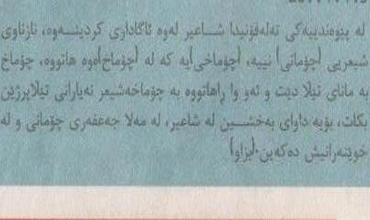 لە پێوەندییەکی تەلەفۆنیدا شـــاعیر لەوە ئاگاداری کردینـــەوە، نازناوی
شیعریی (چۆمانی) نییە، (چۆماخی)یە کە لە (چۆماخ)ەوە هاتووە، چۆماخ
بە مانای تێلا دێت و ئەو وا ڕاهاتووە بە چۆماخەشیعر نەیارانی تێلاپرژین
بکات، بۆیە داوای بەخشـــین لە شاعیر، لە مەلا جەعفەری چۆمانی و لە
خوێنەرانیش دەکەین.(بزاو)